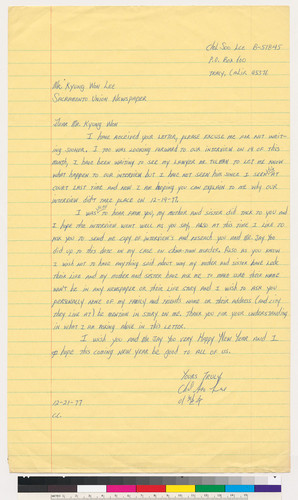 Chol Soo Lee B-51845
P.O. Box 600
Tracy, Calif. 95376
Mr. Kyung Won Lee
Sacramento Union Newspaper
Dear Mr. Kyung Won
I have received your letter, please excuse me for not writ-
ing sooner. I too was looking forward to our interview on 19 of this
month, I have been waiting to see my lawyer Mr. to let me know
what happen to our interview but I have not seen him since I seen him at
court last time and now I am hoping you can explain to me why our
interview didn't take place on 12-19-77.
I was to hear from you, my mother and sister did talk to you and
I hope the interview went well as you say. Also at this time I like to
ask you to send me copy of interview's and reseach you and Mr. Jay Yoo
did up to this date on my case on Chinatown murder. Also as you know
I wish not to have anything said about why my mother and sister have lock
their live and my mother and sister have ask me to make sure their name
won't be in any newspaper or their live story and I wish to ask you
personally none of my family and friends name or their address (and city
they live at) be mention in story on me. Thank you for your understanding
in what I am asking above in this letter.
I wish you and Mr. Jay Yoo very Happy New Year and I
do hope this coming new year be good to all of us.
Yours Truly
Chol Soo Lee
12-21-77
CC.